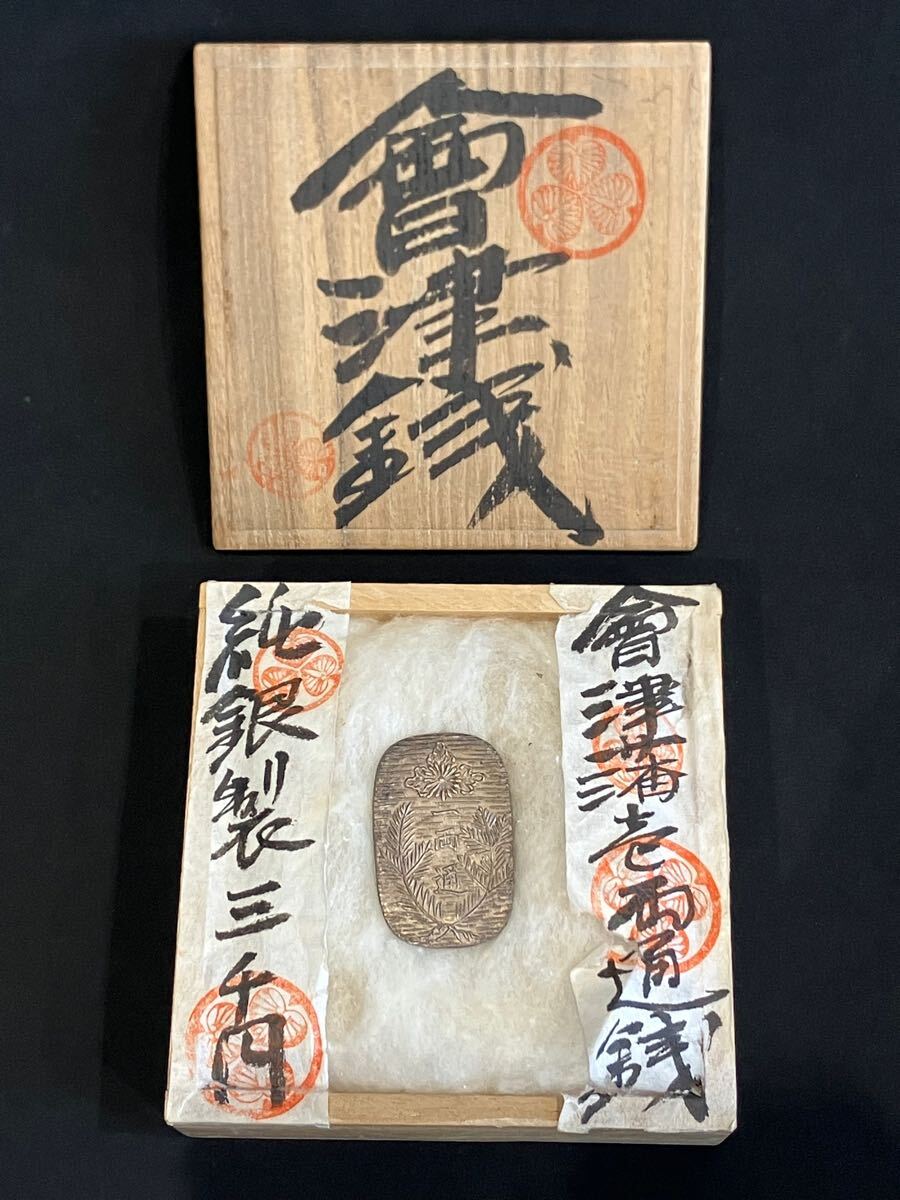 會津錢
會津藩壱両通錢
一両通
純銀製三千円